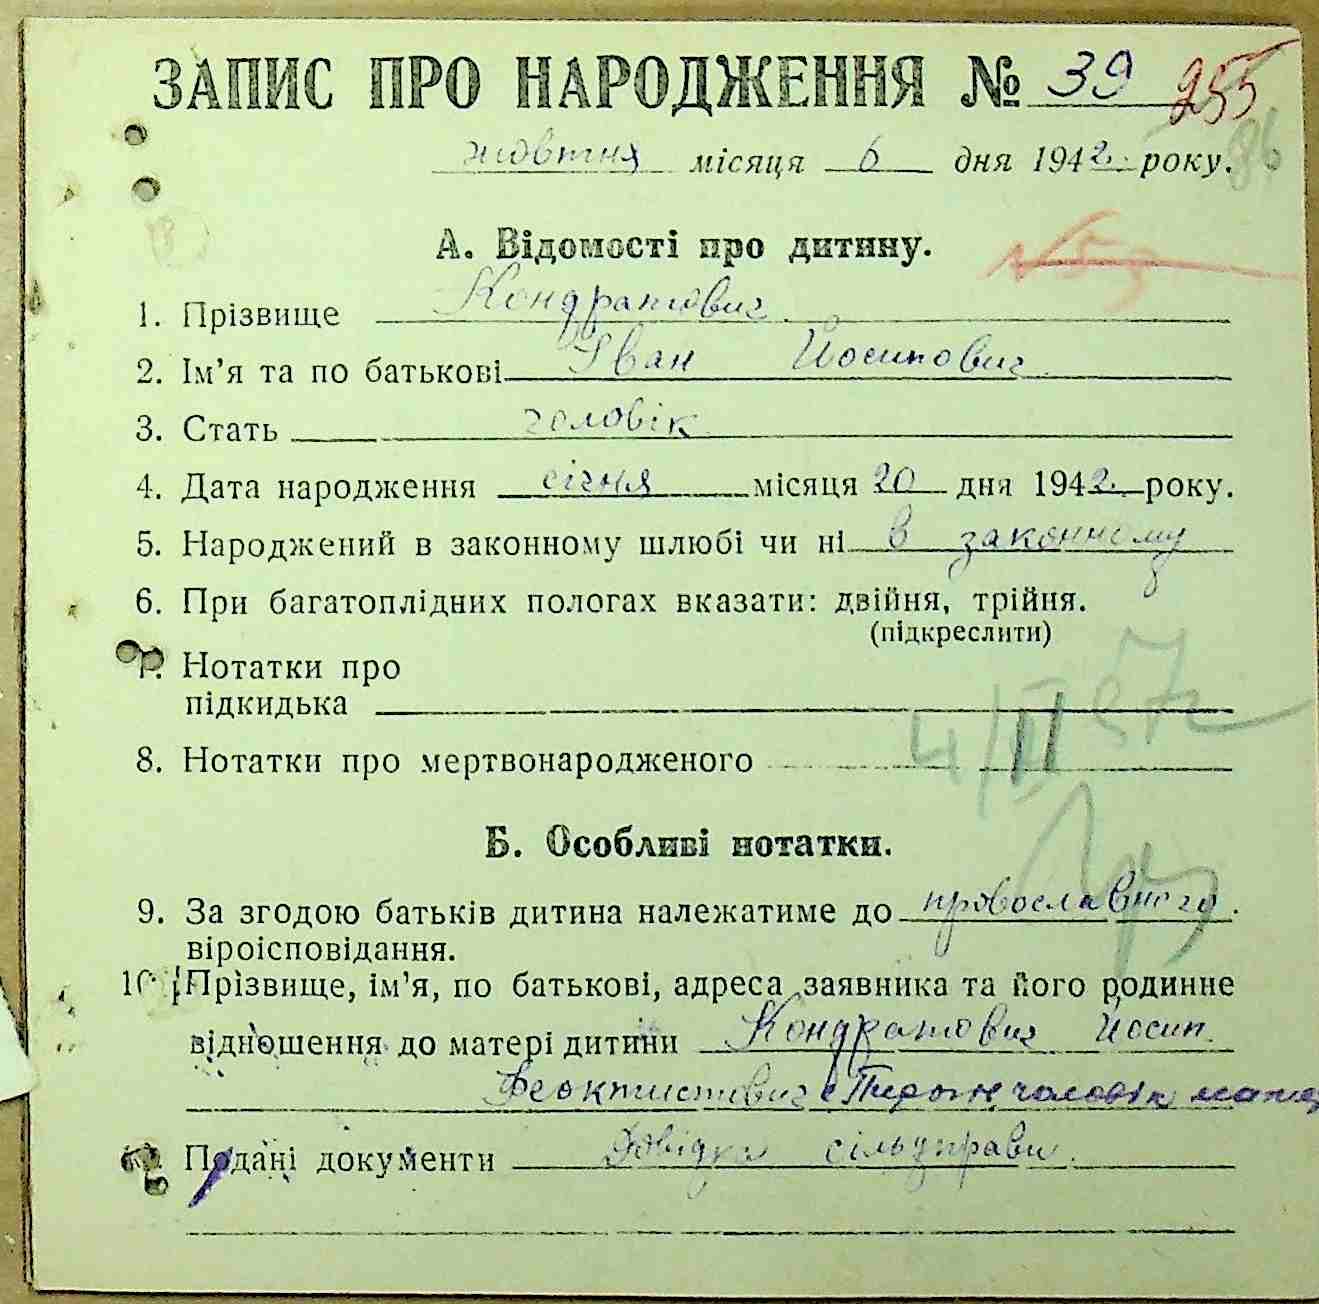 ЗАПИС ПРО НАРОДЖЕННЯ № 39 255
86
жовтня місяця 6 дня 1942 року.
А. Відомості про дитину.
1. Прізвище Кондратович
2. Ім'я та по батькові Іван Йосипович
3. Стать чоловік
4. Дата народження січня місяця 20 дня 1942 року.
5. Народжений в законному шлюбі чи ні в законному
6. При багатоплідних пологах вказати: двійня, трійня.
(підкреслити)
7. Нотатки про
підкидька
8. Нотатки про мертвонародженого
4/II 57
Б. Особливі нотатки.
9. За згодою батьків дитина належатиме до провославного
віроісповідання.
10. Прізвище, ім'я, по батькові, адреса заявника та його родинне
відношення до матері дитини Кондратович Йосип
Феоктистович чоловік
Подані документи Довідка сільуправи